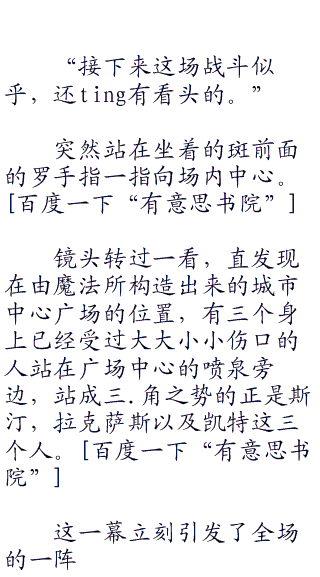 “接下来这场战斗似
乎，还ting有看头的。”
突然站在坐着的斑前面
的罗手指一指向场内中心。
[百度一下“有意思书院”]
镜头转过一看，直发现
在由魔法所构造出来的城市
中心广场的位置，有三个身
上已经受过大大小小伤口的
人站在广场中心的喷泉旁
边，站成三.角之势的正是斯
汀，拉克萨斯以及凯特这三
个人。[百度一下“有意思书
院”]
这一幕立刻引发了全场
的一阵